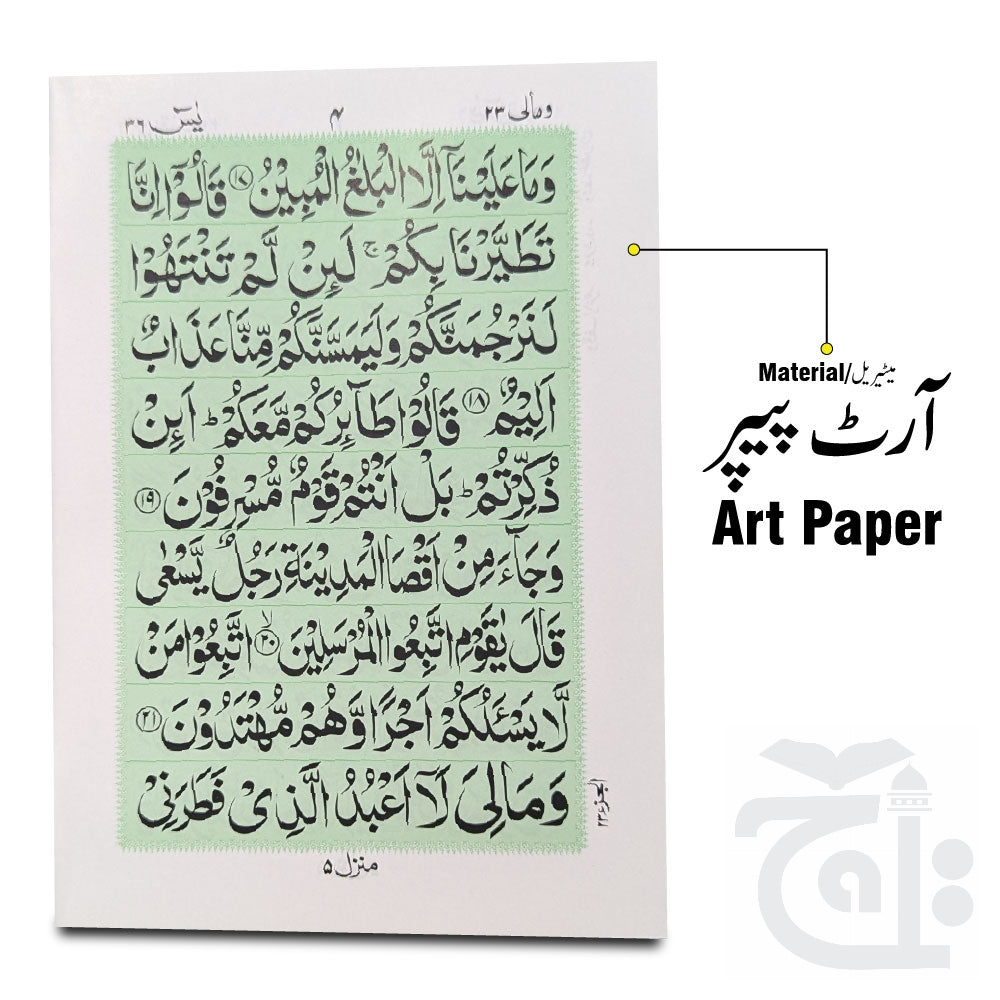 ومالی ۲۳
۴
یٰسٓ ۳۶
وَمَا عَلَيْنَآ اِلَّا الْبَلٰغُ الْمُبِيْنُ ۱۷ قَالُوْٓا اِنَّا
تَطَيَّرْنَا بِكُمْ ۚ لَىِٕنْ لَّمْ تَنْتَهُوْا
لَنَرْجُمَنَّكُمْ وَلَيَمَسَّنَّكُمْ مِّنَّا عَذَابٌ
اَلِيْمٌ ۱۸ قَالُوْا طَآىِٕرُكُمْ مَّعَكُمْ ؕ اَىِٕنْ
ذُكِّرْتُمْ ؕ بَلْ اَنْتُمْ قَوْمٌ مُّسْرِفُوْنَ ۱۹
وَجَآءَ مِنْ اَقْصَا الْمَدِيْنَةِ رَجُلٌ يَّسْعٰى
قَالَ يٰقَوْمِ اتَّبِعُوا الْمُرْسَلِيْنَ ۲۰ۙ اتَّبِعُوْا مَنْ
لَّا يَسْـَٔلُكُمْ اَجْرًا وَّهُمْ مُّهْتَدُوْنَ ۲۱
وَمَا لِيَ لَآ اَعْبُدُ الَّذِيْ فَطَرَنِيْ
الجزء ۲۳
منزل ۵
Material/میٹیریل
آرٹ پیپر
Art Paper